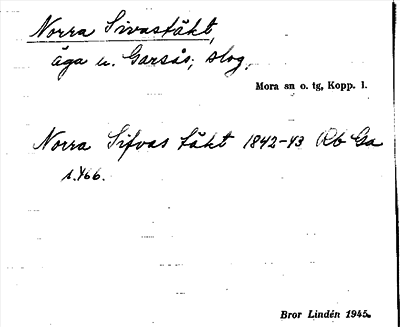 Norra Sivastäkt,
äga u. Garsås; slog.
Mora sn o. tg, Kopp. l.
Norra Sifvas täkt 1842-43 Rb Ga
s. 466.
Bror Lindén 1945.